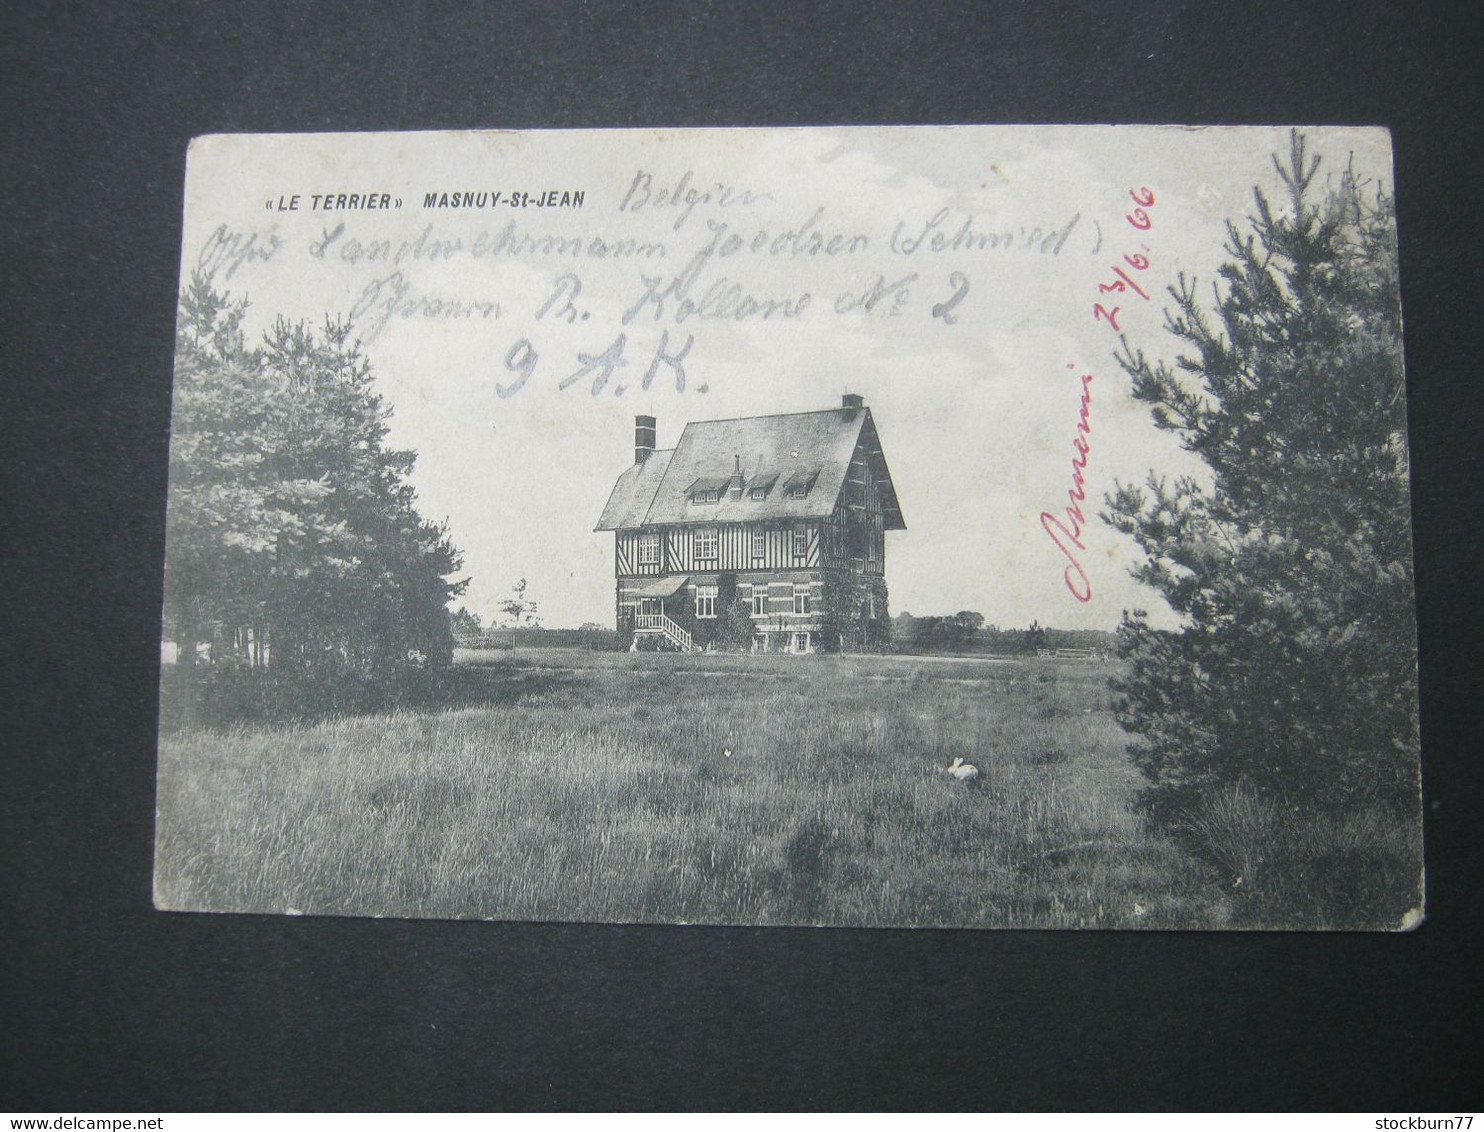 «LE TERRIER» MASNUY-St-JEAN
Belgien
Landwehrmann Jacobsen (Schmied)
Kollone № 2
9 A.K.
23/6.66
www.delcampe.net
stockburn77